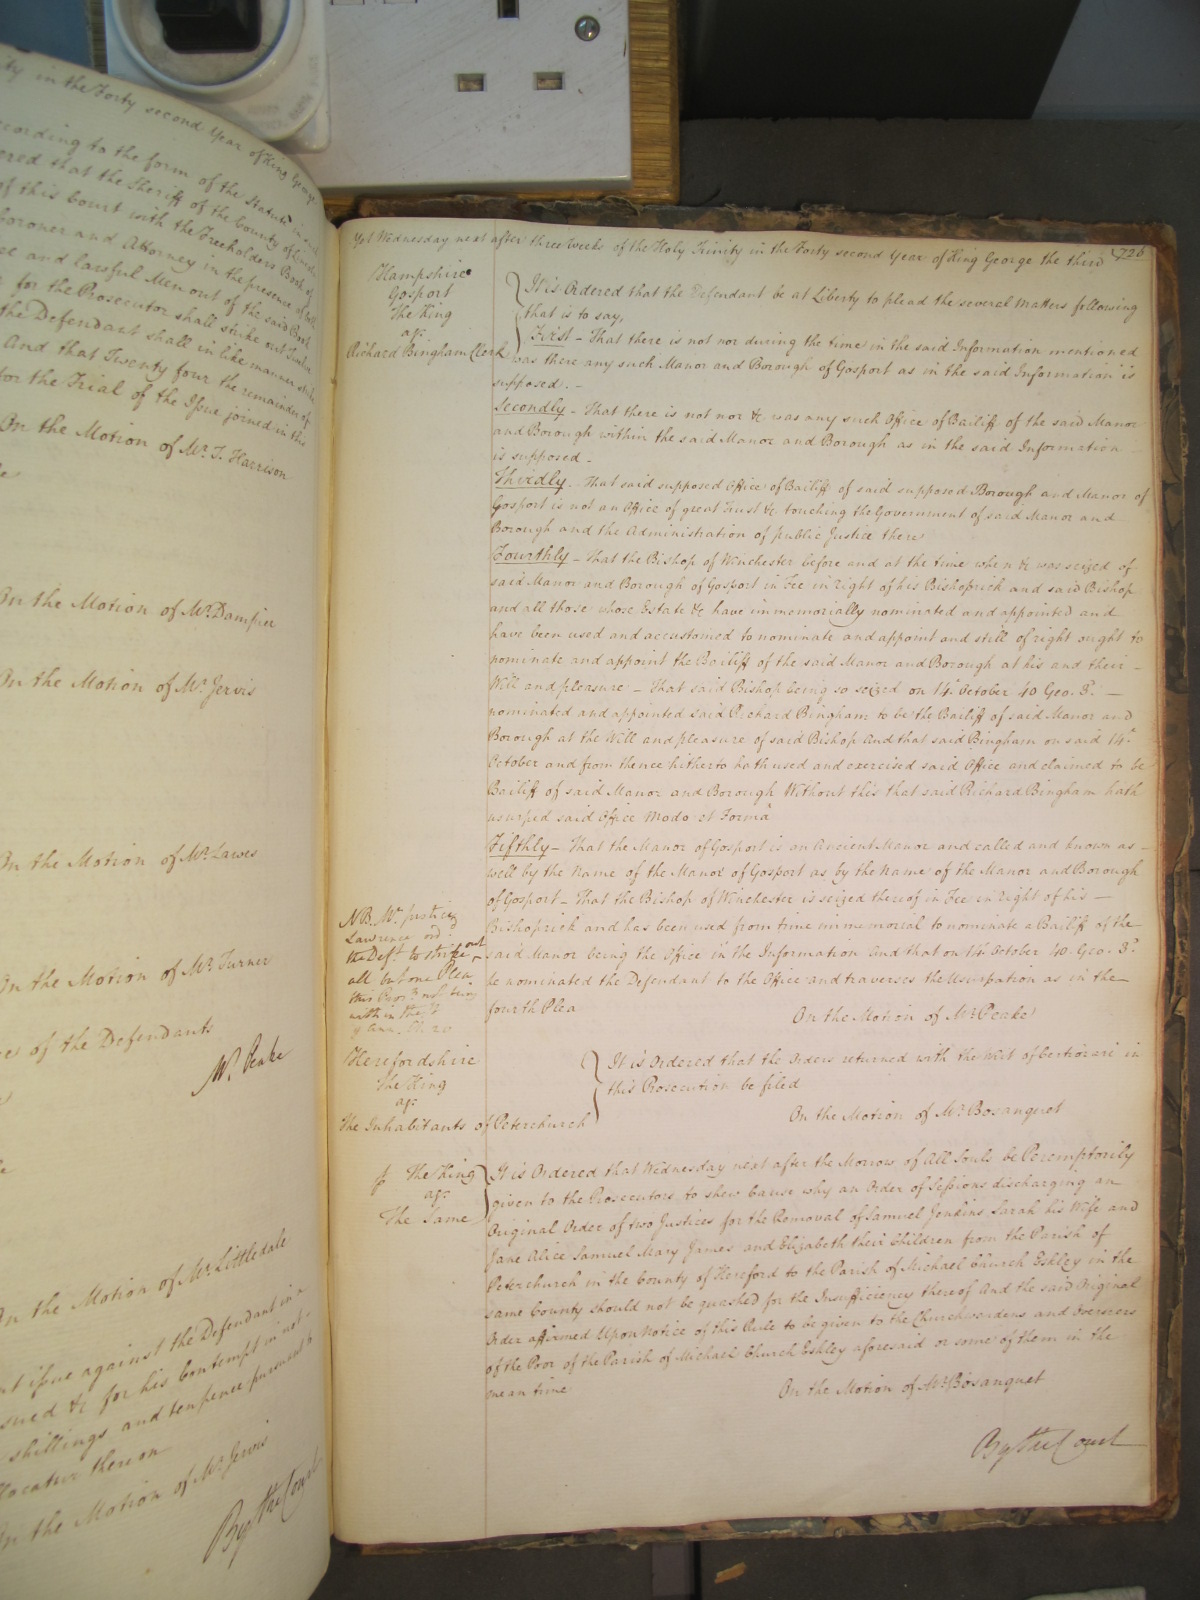 ity in the Forty second Year of King George
ccording to the form of the Statute in
ered that the Sheriff of the County of
of this Court with the Freeholders Book
Coroner and Attorney in the presence of
ee and lawful Men out of the said Book
for the Prosecutor shall strike out Twelve
the Defendant shall in like manner strike
And that Twenty four the remainder of
for the Trial of the Issue joined in this
On the Motion of Mr. T. Harrison
On the Motion of Mr. Dampier
On the Motion of Mr. Jervis
On the Motion of Mr. Lawes
On the Motion of Mr. Turner
of the Defendants
Mr. Peake
On the Motion of Mr. Littledale
nt issue against the Defendant in
sued &c for his Contempt in not
shillings and ten pence pursuant to
llocatur thereon
On the Motion of Mr. Jervis
By the Court
Yet Wednesday next after three Weeks of the Holy Trinity in the Forty second Year of King George the third 726
Hampshire
Gosport
The King
agt
Richard Bingham Clerk
It is Ordered that the Defendant be at Liberty to plead the several Matters following
that is to say,
First - That there is not nor during the time in the said Information mentioned
was there any such Manor and Borough of Gosport as in the said Information is
supposed. -
Secondly - That there is not nor &c was any such Office of Bailiff of the said Manor
and Borough within the said Manor and Borough as in the said Information
is supposed -
Thirdly - That said supposed Office of Bailiff of said supposed Borough and Manor of
Gosport is not an Office of great Trust &c touching the Government of said Manor and
Borough and the Administration of public Justice there
Fourthly - That the Bishop of Winchester before and at the time when &c was seized of
said Manor and Borough of Gosport in Fee in right of his Bishoprick and said Bishop
and all those whose Estate &c have immemorially nominated and appointed and
have been used and accustomed to nominate and appoint and still of right ought to
nominate and appoint the Bailiff of the said Manor and Borough at his and their -
Will and pleasure - That said Bishop being so seized on 14th October 40 Geo. 3d. -
nominated and appointed said Richard Bingham to be the Bailiff of said Manor and
Borough at the Will and pleasure of said Bishop And that said Bingham on said 14th
October and from thence hitherto hath used and exercised said Office and claimed to be
Bailiff of said Manor and Borough Without this that said Richard Bingham hath
usurped said Office Modo et Formâ
Fifthly - That the Manor of Gosport is an Ancient Manor and called and known as -
well by the Name of the Manor of Gosport as by the Name of the Manor and Borough
of Gosport - That the Bishop of Winchester is seized thereof in Fee in right of his -
Bishoprick and has been used from time immemorial to nominate a Bailiff of the
said Manor being the Office in the Information And that on 14th October 40. Geo. 3d.
he nominated the Defendant to the Office and traverses the Usurpation as in the
fourth Plea
On the Motion of Mr. Peake
NB. Mr. Justice
Lawrence ord.d
the Deft. to strike out
all but one Plea
this not being
within the St.
of Ann. Ch. 20
Herefordshire
The King
agt
The Inhabitants of Peterchurch
It is Ordered that the Orders returned with the Writ of Certiorari in
this Prosecution be filed
On the Motion of Mr. Bosanquet
The King
agt
The Same
It is Ordered that Wednesday next after the Morrow of All Souls be Peremptorily
given to the Prosecutors to shew Cause why an Order of Sessions discharging an
Original Order of two Justices for the Removal of Samuel Jenkins Sarah his Wife and
Jane Alice Samuel Mary James and Elizabeth their Children from the Parish of
Peterchurch in the County of Hereford to the Parish of Michael Church Eskley in the
same County should not be quashed for the Insufficiency thereof And the said Original
Order affirmed Upon Notice of this Rule to be given to the Churchwardens and Overseers
of the Poor of the Parish of Michael Church Eskley aforesaid or some of them in the
mean time
On the Motion of Mr. Bosanquet
By the Court